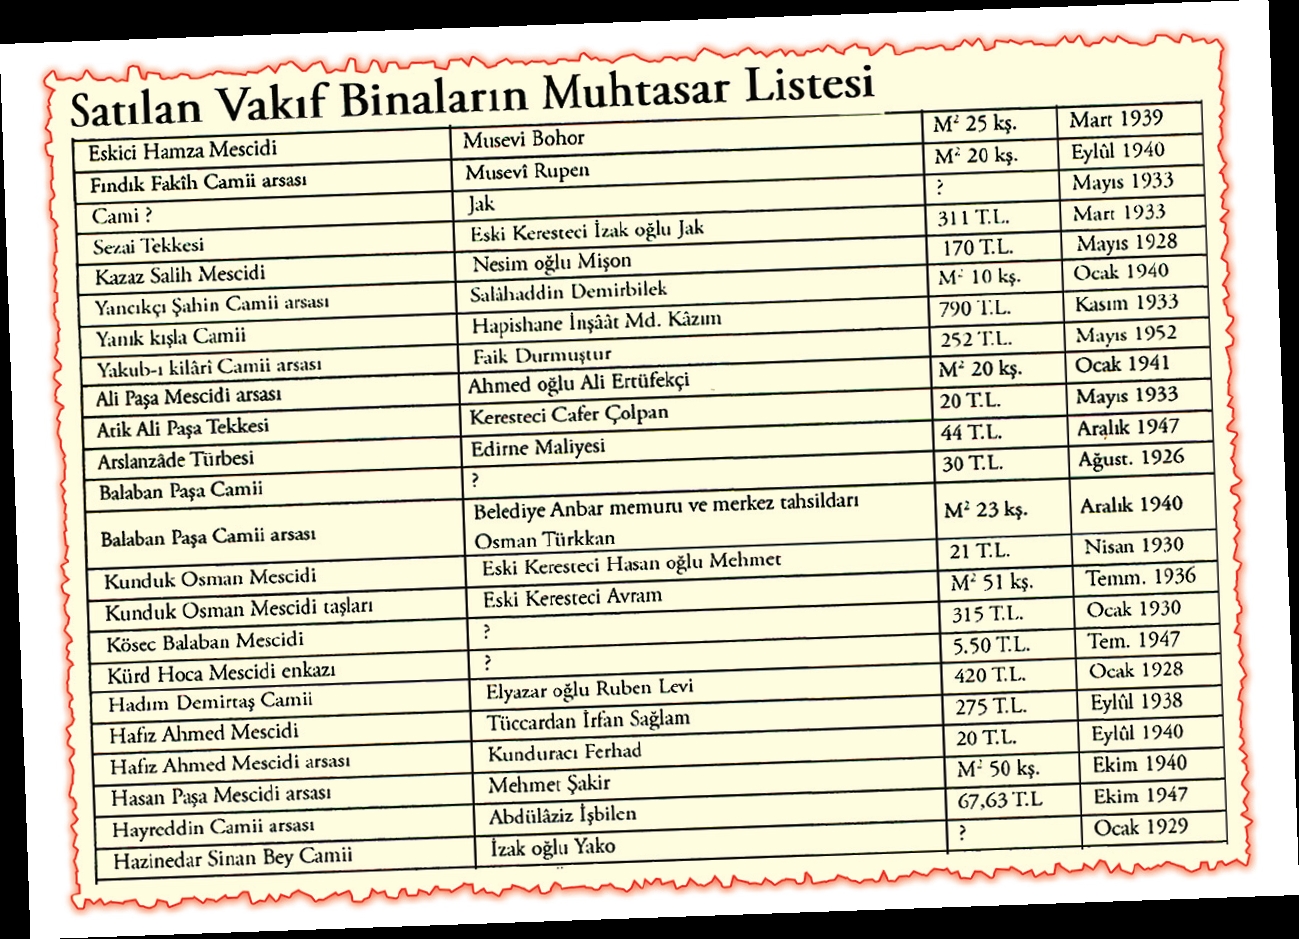 Satılan Vakıf Binaların Muhtasar Listesi
Eskici Hamza Mescidi Musevi Bohor M² 25 kş. Mart 1939
Fındık Fakîh Camii arsası Musevî Rupen M² 20 kş. Eylûl 1940
Cami ? Jak ? Mayıs 1933
Sezai Tekkesi Eski Keresteci İzak oğlu Jak 311 T.L. Mart 1933
Kazaz Salih Mescidi Nesim oğlu Mişon 170 T.L. Mayıs 1928
Yancıkçı Şahin Camii arsası Salâhaddin Demirbilek M² 10 kş. Ocak 1940
Yanık kışla Camii Hapishane İnşâât Md. Kâzım 790 T.L. Kasım 1933
Yakub-ı kilârî Camii arsası Faik Durmuştur 252 T.L. Mayıs 1952
Ali Paşa Mescidi arsası Ahmed oğlu Ali Ertüfekçi M² 20 kş. Ocak 1941
Atik Ali Paşa Tekkesi Keresteci Cafer Çolpan 20 T.L. Mayıs 1933
Arslanzâde Türbesi Edirne Maliyesi 44 T.L. Aralık 1947
Balaban Paşa Camii ? 30 T.L. Ağust. 1926
Balaban Paşa Camii arsası Belediye Anbar memuru ve merkez tahsildarı M² 23 kş. Aralık 1940
Osman Türkkan
Kunduk Osman Mescidi Eski Keresteci Hasan oğlu Mehmet 21 T.L. Nisan 1930
Kunduk Osman Mescidi taşları Eski Keresteci Avram M² 51 kş. Temm. 1936
Kösec Balaban Mescidi ? 315 T.L. Ocak 1930
Kürd Hoca Mescidi enkazı ? 5.50 T.L. Tem. 1947
Hadım Demirtaş Camii Elyazar oğlu Ruben Levi 420 T.L. Ocak 1928
Hafız Ahmed Mescidi Tüccardan İrfan Sağlam 275 T.L. Eylûl 1938
Hafız Ahmed Mescidi arsası Kunduracı Ferhad 20 T.L. Eylûl 1940
Hasan Paşa Mescidi arsası Mehmet Şakir M² 50 kş. Ekim 1940
Hayreddin Camii arsası Abdülâziz İşbilen 67,63 T.L Ekim 1947
Hazinedar Sinan Bey Camii İzak oğlu Yako ? Ocak 1929